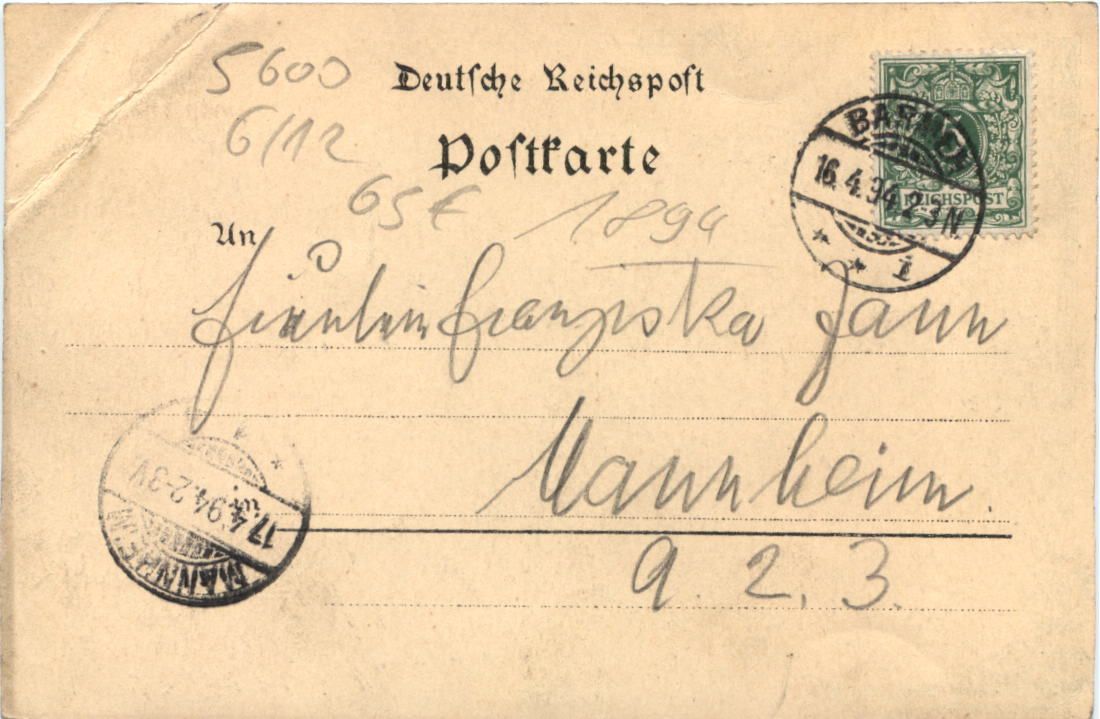 5600
Deutsche Reichspost
6/12
Postkarte
65€ 1894
An
BARMEN
16.4.94.2-3N
1
REICHSPOST
Fräulein Franziska Jann
Mannheim.
2. 3.
1
17.4.94.2-3V
MANNHEIM